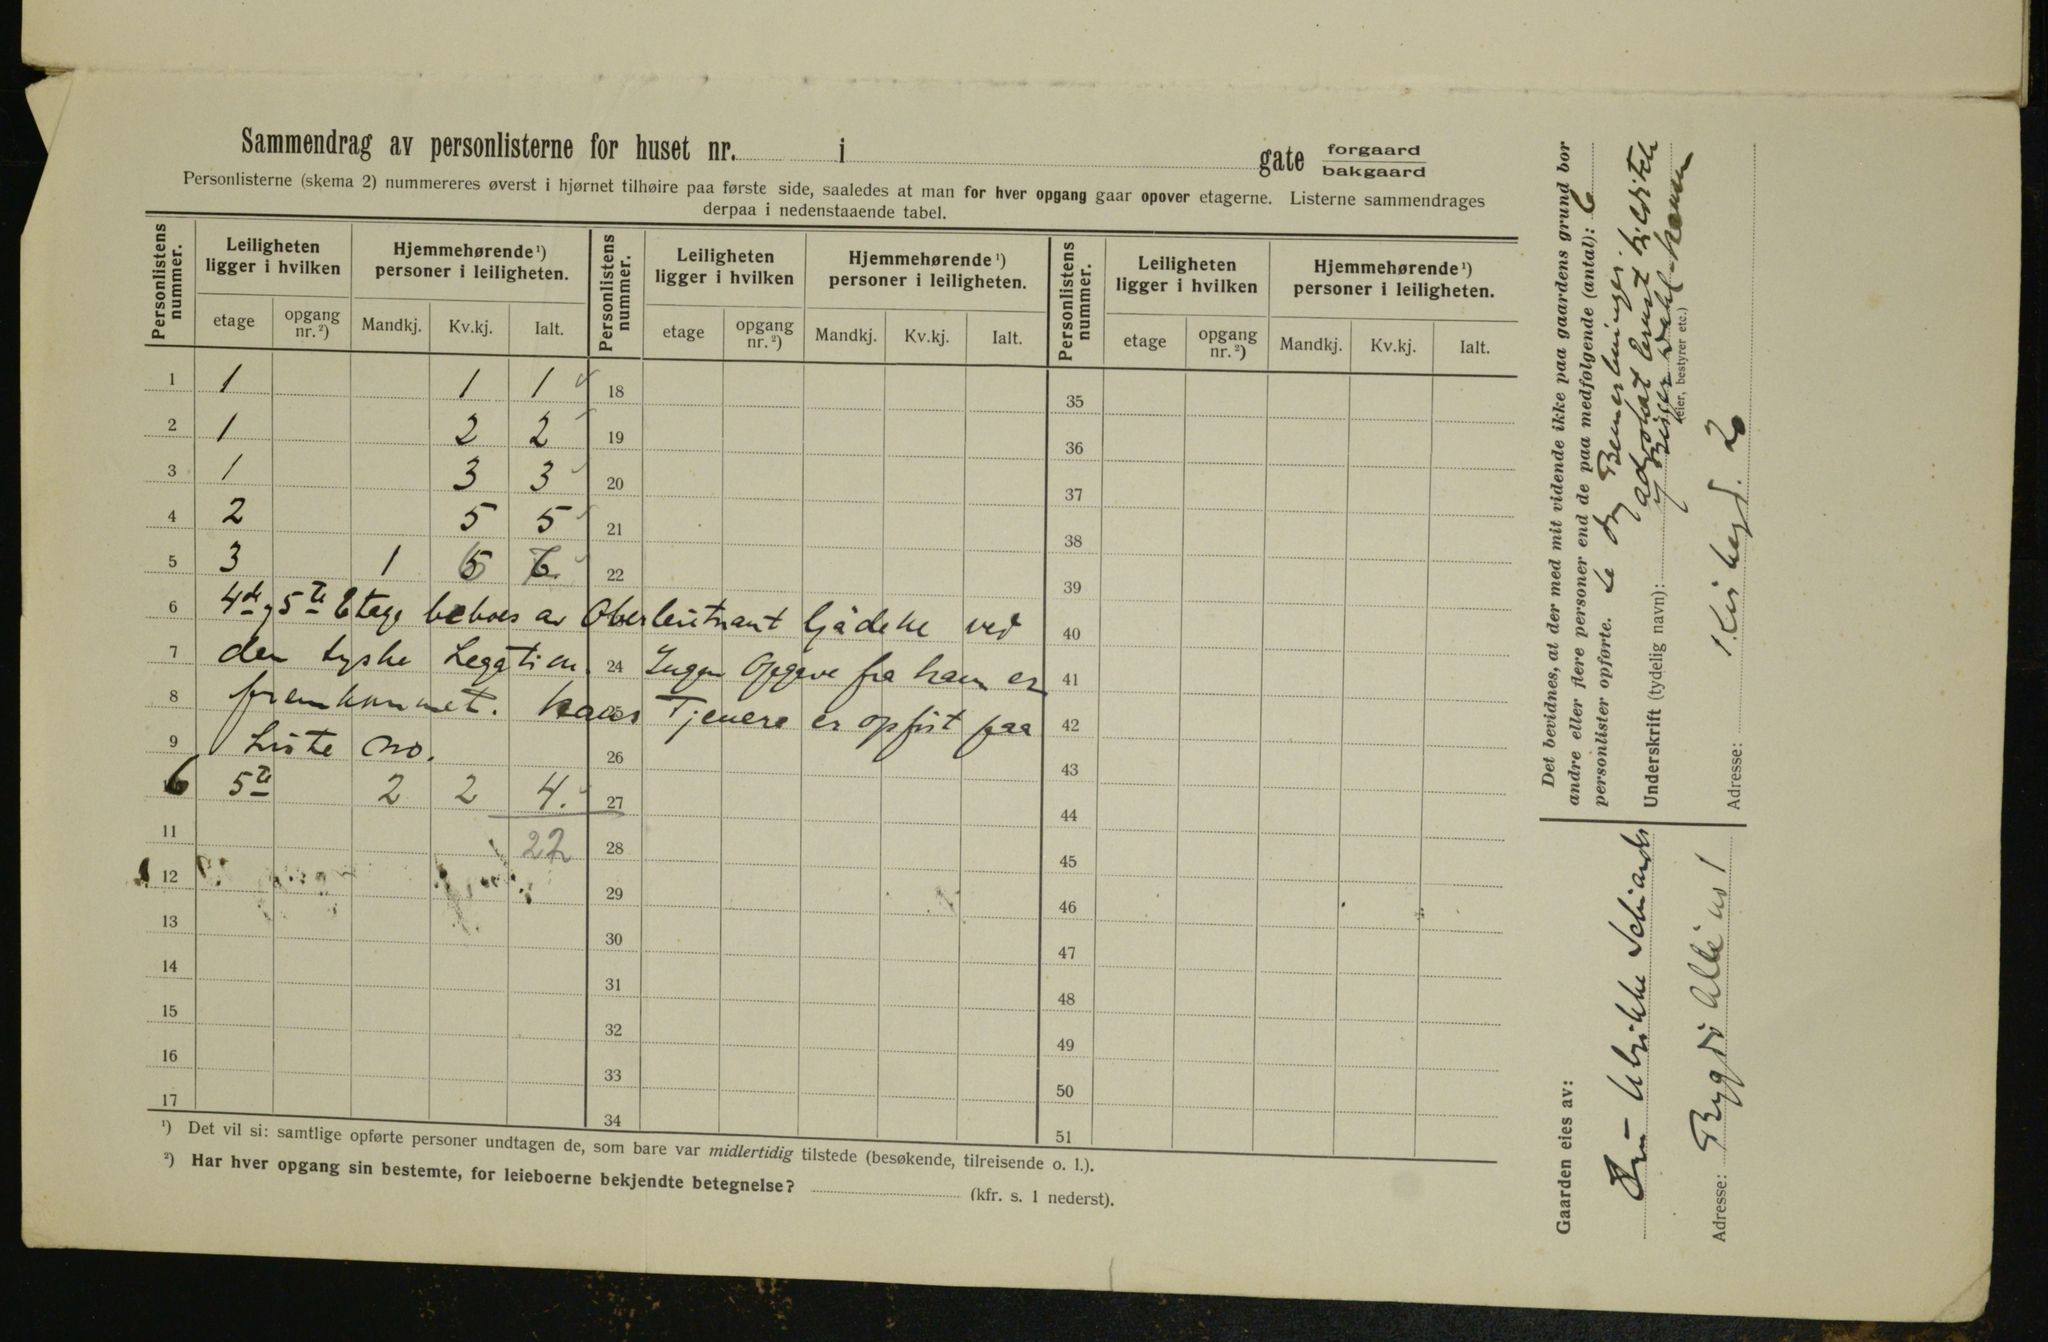 Sammendrag av personlisterne for huset nr. i gate forgaard
bakgaard
Personlisterne (skema 2) nummereres øverst i hjørnet tilhøire paa første side, saaledes at man for hver opgang gaar opover etagerne. Listerne sammendrages
derpaa i nedenstaaende tabel.
Personlistens nummer. Leiligheten ligger i hvilken Hjemmehørende ¹) personer i leiligheten. Personlistens nummer. Leiligheten ligger i hvilken Hjemmehørende ¹) personer i leiligheten. Personlistens nummer. Leiligheten ligger i hvilken Hjemmehørende ¹) personer i leiligheten.
etage opgang nr. ²) Mandkj. Kv.kj. Ialt. etage opgang nr. ²) Mandkj. Kv.kj. Ialt. etage opgang nr. ²) Mandkj. Kv.kj. Ialt.
1 1 1 1 18 35
2 1 2 2 19 36
3 1 3 3 20 37
4 2 5 5 21 38
5 3 1 22 39
6 4de 5te Etage beboes av Oberleutnant ved 40
7 den tyske Legation. 24 Ingen Opgave fra ham er 41
8 fremkommet. hans Tjenere er opført paa 42
9 Liste no. 26 43
6 5te 2 2 4. 27 44
11 22 28 45
12 29 46
13 30 47
14 31 48
15 32 49
16 33 50
17 34 51
¹) Det vil si: samtlige opførte personer undtagen de, som bare var midlertidig tilstede (besøkende, tilreisende o. l.).
²) Har hver opgang sin bestemte, for leieboerne bekjendte betegnelse? (kfr. s. 1 nederst).
Det bevidnes, at der med mit vidende ikke paa gaardens grund bor
andre eller flere personer end de paa medfølgende (antal): 6
personlister opførte. Se
Underskrift (tydelig navn):
(eier, bestyrer etc.)
Adresse: 2
Gaarden eies av:
Ulrikke
Adresse: Bygdø Allé no 1